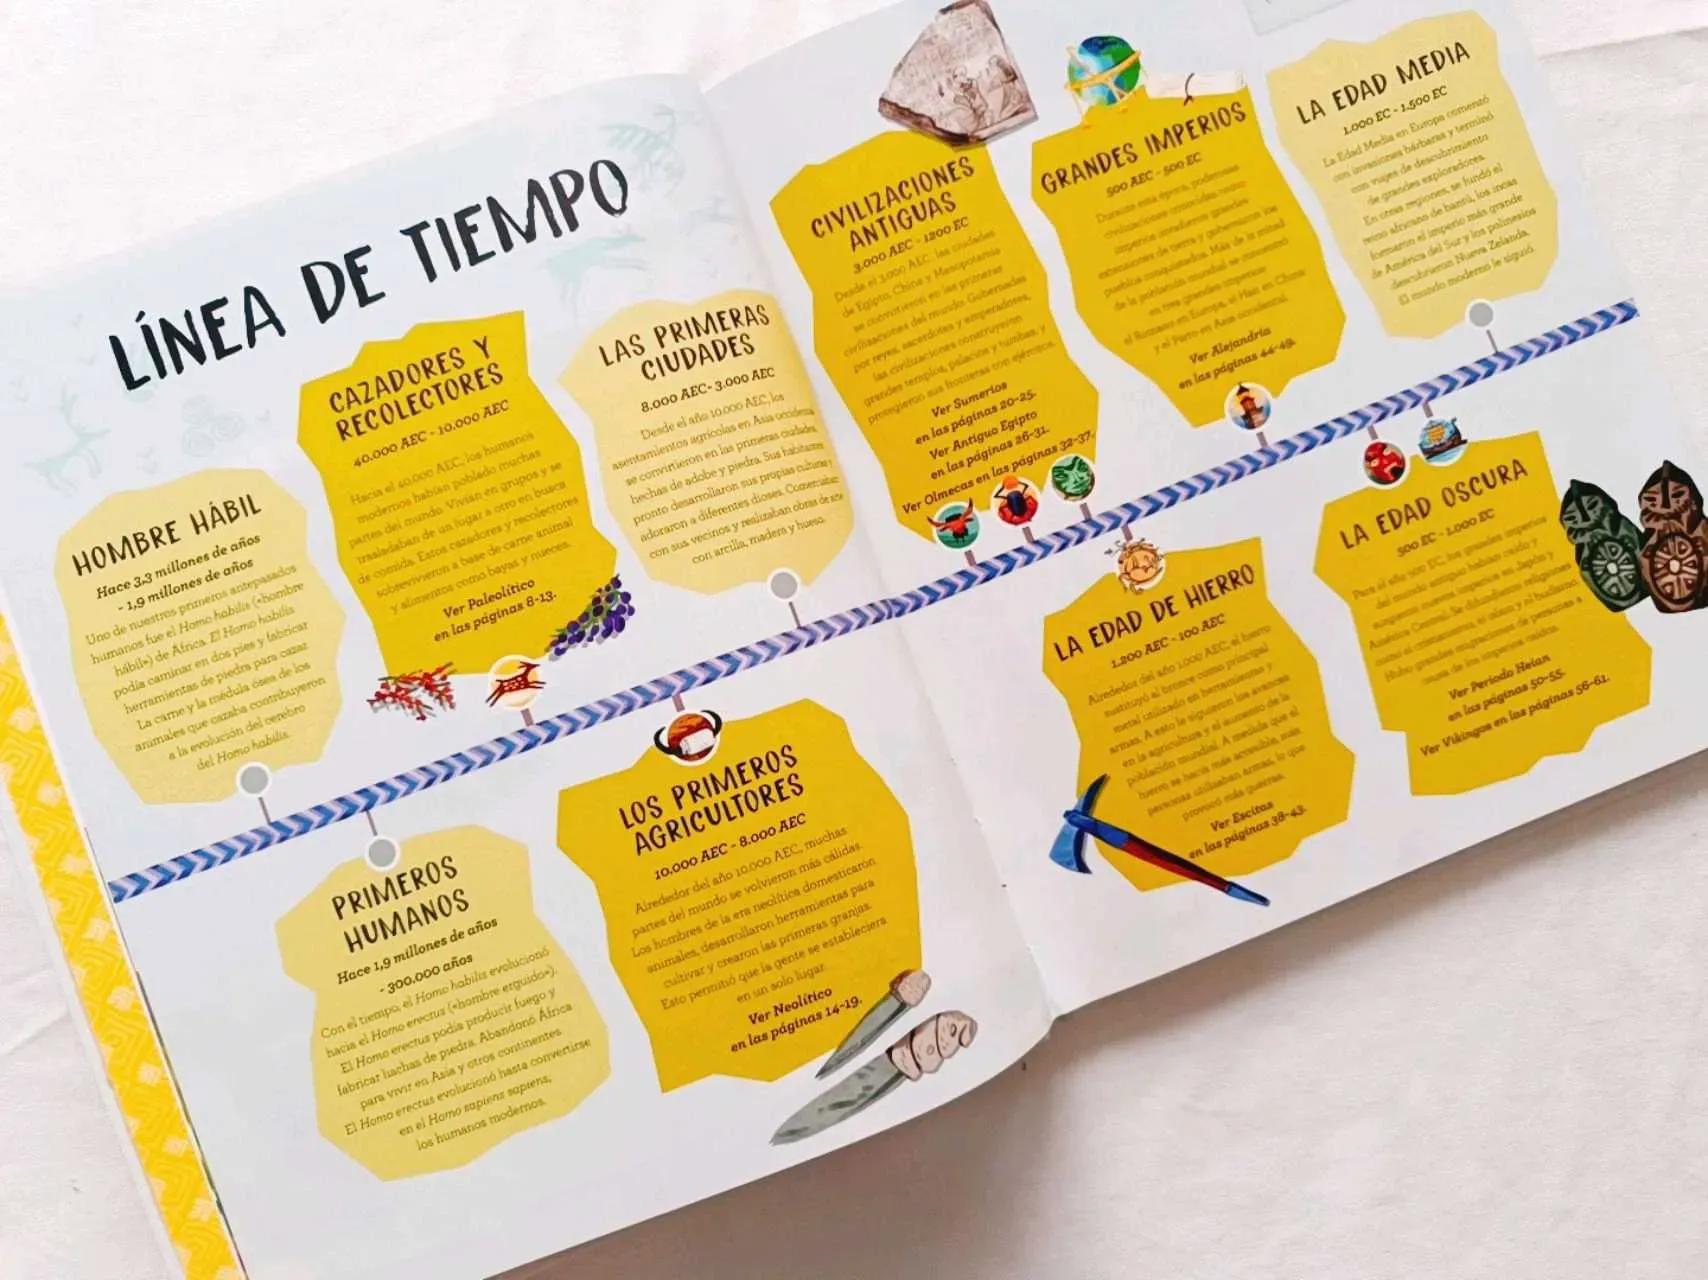 LÍNEA DE TIEMPO
HOMBRE HÁBIL
Hace 3,3 millones de años
- 1,9 millones de años
Uno de nuestros primeros antepasados
humanos fue el Homo habilis («hombre
hábil») de África. El Homo habilis
podía caminar en dos pies y fabricar
herramientas de piedra para cazar.
La carne y la médula ósea de los
animales que cazaba contribuyeron
a la evolución del cerebro
del Homo habilis.
PRIMEROS
HUMANOS
Hace 1,9 millones de años
- 300.000 años
Con el tiempo, el Homo habilis evolucionó
hacia el Homo erectus («hombre erguido»).
El Homo erectus podía producir fuego y
fabricar hachas de piedra. Abandonó África
para vivir en Asia y otros continentes.
El Homo erectus evolucionó hasta convertirse
en el Homo sapiens sapiens,
los humanos modernos.
CAZADORES Y
RECOLECTORES
40.000 AEC - 10.000 AEC
Hacia el 40.000 AEC, los humanos
modernos habían poblado muchas
partes del mundo. Vivían en grupos y se
trasladaban de un lugar a otro en busca
de comida. Estos cazadores y recolectores
sobrevivieron a base de carne animal
y alimentos como bayas y nueces.
Ver Paleolítico
en las páginas 8-13.
LOS PRIMEROS
AGRICULTORES
10.000 AEC - 8.000 AEC
Alrededor del año 10.000 AEC, muchas
partes del mundo se volvieron más cálidas.
Los hombres de la era neolítica domesticaron
animales, desarrollaron herramientas para
cultivar y crearon las primeras granjas.
Esto permitió que la gente se estableciera
en un solo lugar.
Ver Neolítico
en las páginas 14-19.
LAS PRIMERAS
CIUDADES
8.000 AEC- 3.000 AEC
Desde el año 10.000 AEC, los
asentamientos agrícolas en Asia
se convirtieron en las primeras ciudades,
hechas de adobe y piedra. Sus habitantes
pronto desarrollaron sus propias culturas y
adoraron a diferentes dioses. Comerciaban
con sus vecinos y realizaban obras de arte
con arcilla, madera y hueso.
CIVILIZACIONES
ANTIGUAS
3.000 AEC - 1200 EC
Desde el 3.000 AEC, las ciudades
de Egipto, China y Mesopotamia
se convirtieron en las primeras
civilizaciones del mundo. Gobernadas
por reyes, sacerdotes y emperadores,
las civilizaciones construyeron
grandes templos, palacios y tumbas, y
protegieron sus fronteras con ejércitos.
Ver Sumerios
en las páginas 20-25.
Ver Antiguo Egipto
en las páginas 26-31.
Ver Olmecas en las páginas 32-37.
LA EDAD DE HIERRO
1.200 AEC - 100 AEC
Alrededor del año 1.000 AEC, el hierro
sustituyó al bronce como principal
metal utilizado en herramientas y
armas. A esto le siguieron los avances
en la agricultura y el aumento de la
población mundial. A medida que el
hierro se hacía más accesible, más
personas utilizaban armas, lo que
provocó más guerras.
Ver Escitas
en las páginas 38-43.
GRANDES IMPERIOS
500 AEC - 500 EC
Durante esta época, poderosas
civilizaciones conocidas como
imperios invadieron grandes
extensiones de tierra y gobernaron los
pueblos conquistados. Más de la mitad
de la población mundial se concentró
en tres grandes imperios:
el Han en China
el Romano en Europa,
y el Parto en Asia occidental.
Ver Alejandría
en las páginas 44-49.
LA EDAD OSCURA
500 EC - 1.000 EC
Para el año 500 EC, los grandes imperios
del mundo antiguo habían caído y
surgieron nuevos imperios en Japón y
América Central. Se difundieron religiones
como el cristianismo, el islam y el budismo.
Hubo grandes migraciones de personas a
causa de los imperios caídos.
Ver Periodo Heian
en las páginas 50-55.
Ver Vikingos en las páginas 56-61.
LA EDAD MEDIA
1.000 EC - 1.500 EC
La Edad Media en Europa comenzó
con invasiones bárbaras y terminó
con viajes de descubrimiento
de grandes exploradores.
En otras regiones, se fundó el
reino africano de bantú, los incas
formaron el imperio más grande
de América del Sur y los polinesios
descubrieron Nueva Zelanda.
El mundo moderno le siguió.